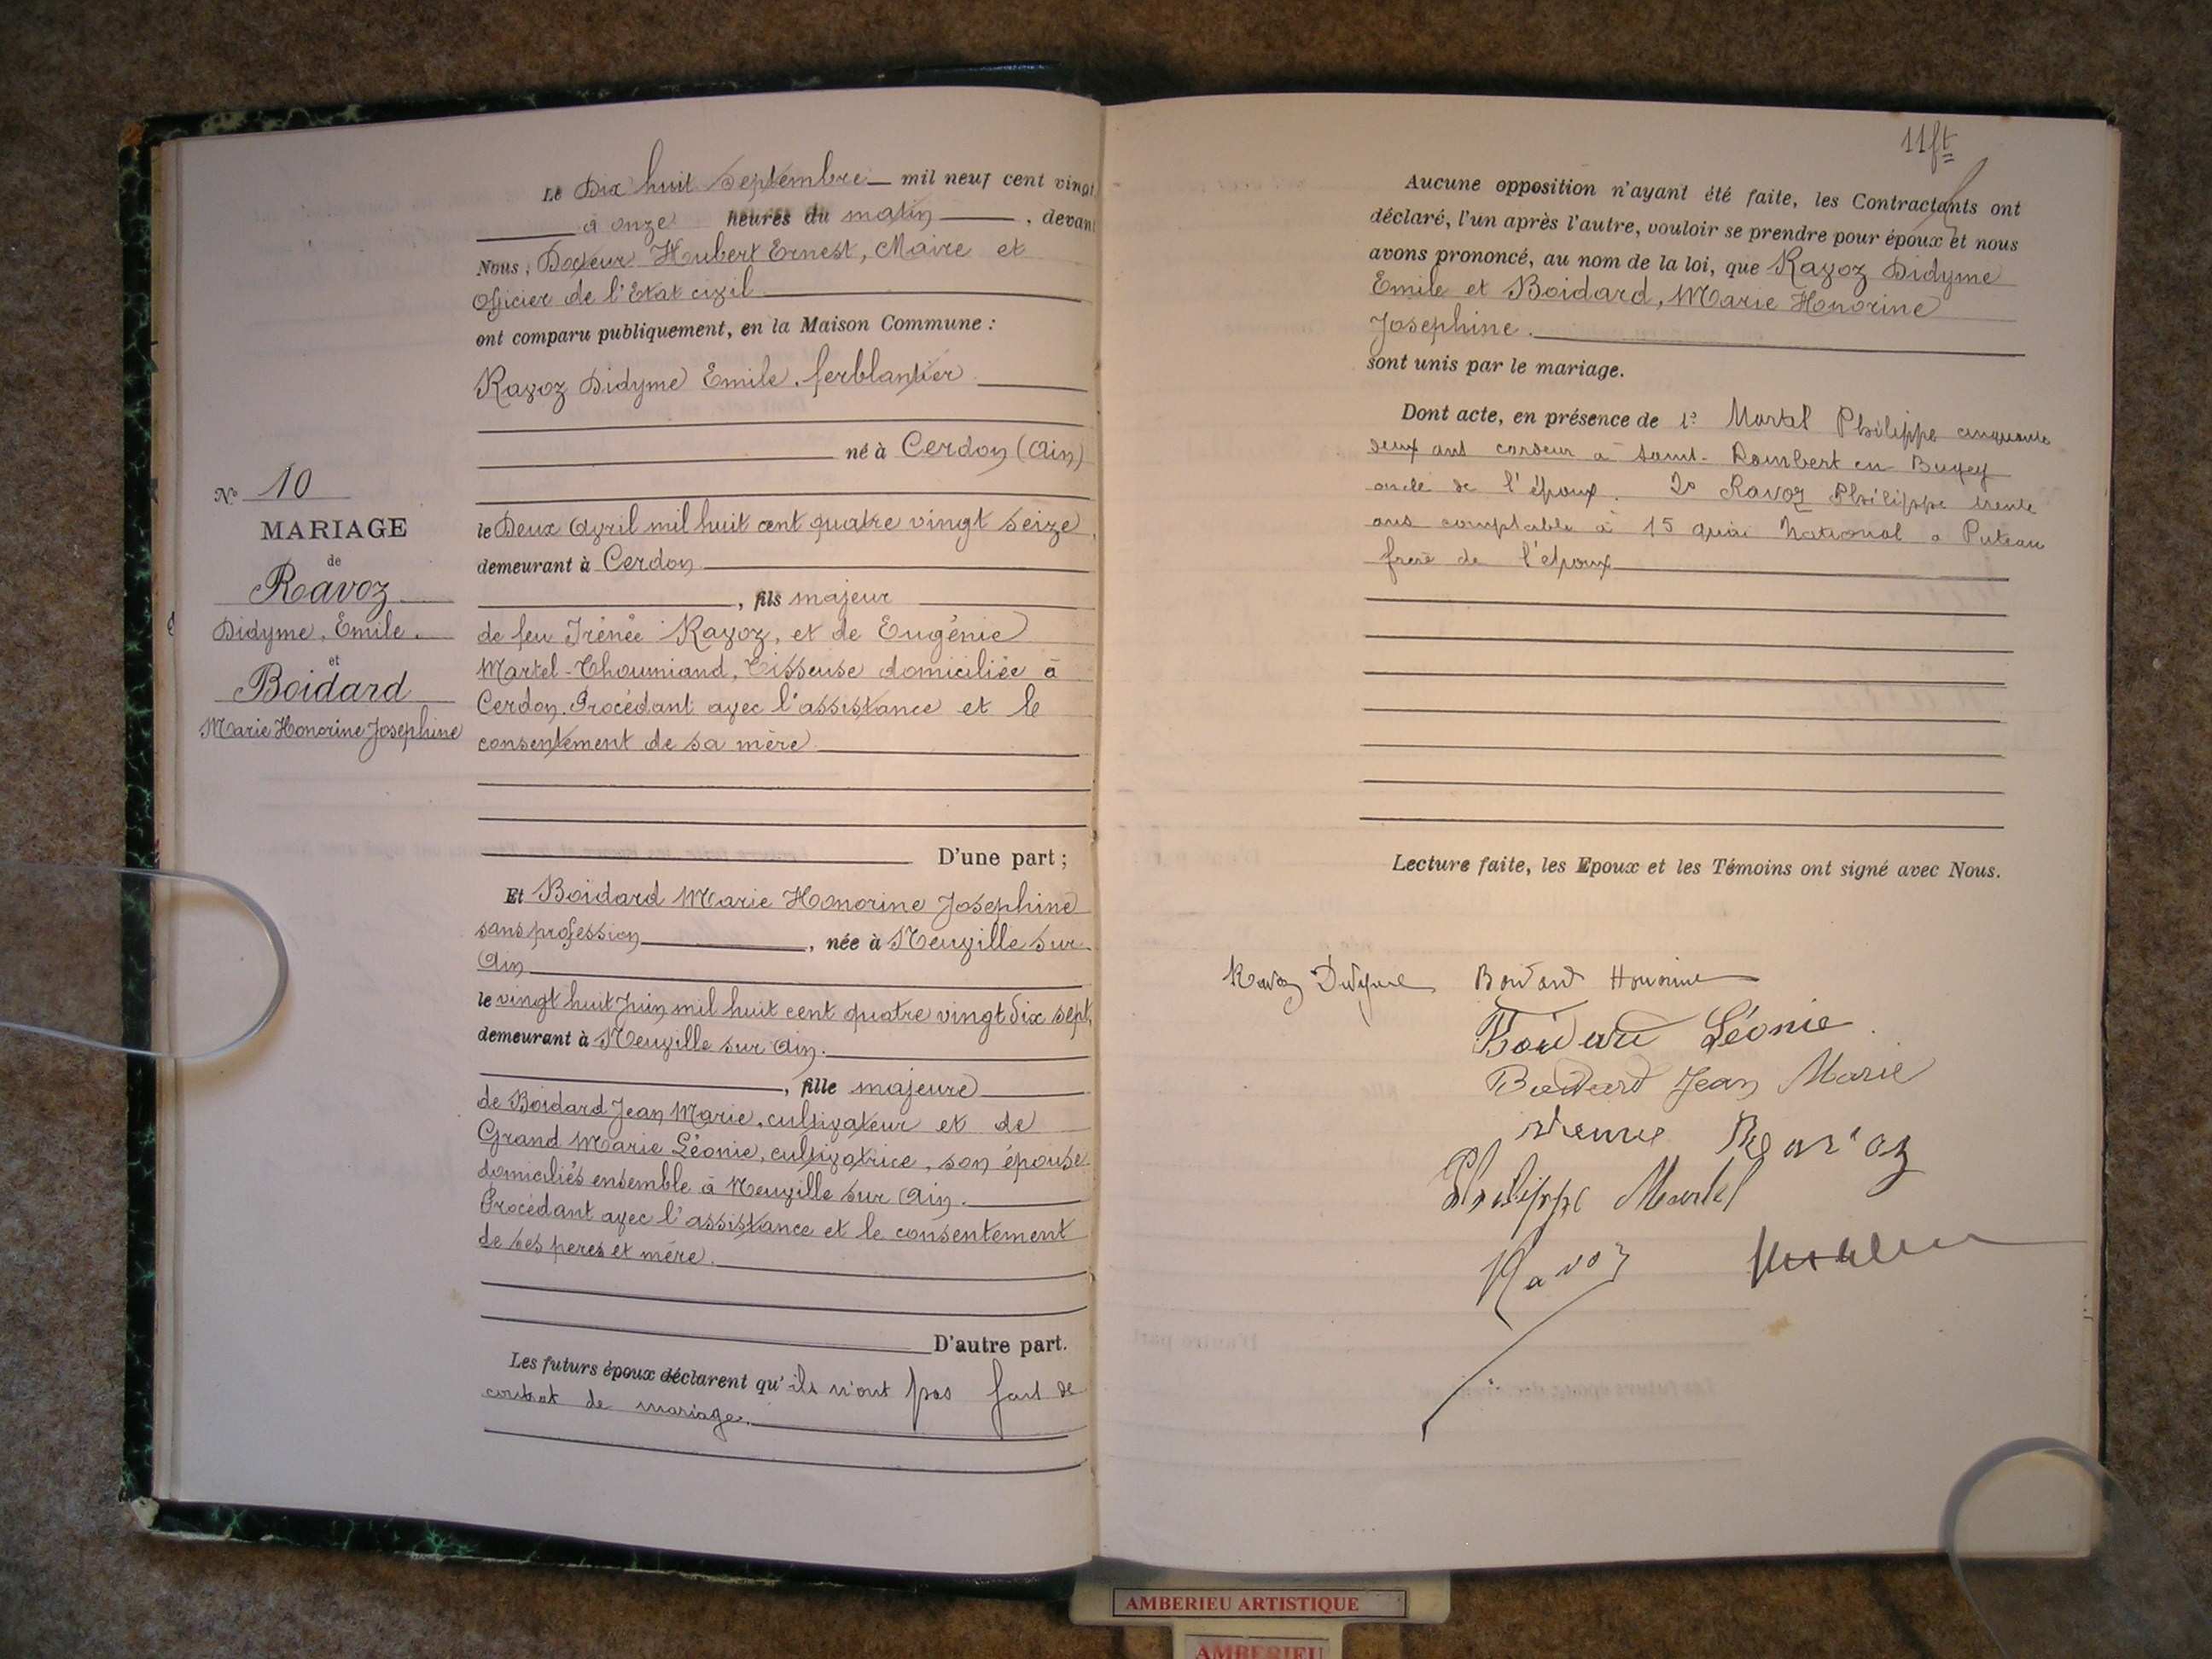 Le Dix huit Septembre mil neuf cent vingt
à onze heures du matin, devant
Nous, Docteur Hubert Ernest, Maire et
Officier de l'Etat civil
ont comparu publiquement, en la Maison Commune :
Ravoz Didyme Emile, ferblantier
né à Cerdon (Ain)
le Deux Avril mil huit cent quatre vingt seize,
demeurant à Cerdon
, fils majeur
de feu Irénée Ravoz, et de Eugénie
Martel-Thoumiand, Tisseuse domiciliée à
Cerdon. Procédant avec l'assistance et le
consentement de sa mère
D'une part ;
N° 10
MARIAGE
de
Ravoz
Didyme, Emile.
et
Boidard
Marie Honorine Josephine
Et Boidard Marie Honorine Josephine
sans profession, née à Neuville sur
Ain
le vingt huit Juin mil huit cent quatre vingt dix sept,
demeurant à Neuville sur Ain.
, fille majeure
de Boidard Jean Marie, cultivateur et de
Grand Marie Léonie, cultivatrice, son épouse
domiciliés ensemble à Neuville sur Ain.
Procédant avec l'assistance et le consentement
de ses peres et mère.
D'autre part.
Les futurs époux déclarent qu'ils n'ont pas fait de
contrat de mariage.
11 ft
Aucune opposition n'ayant été faite, les Contractants ont
déclaré, l'un après l'autre, vouloir se prendre pour époux et nous
avons prononcé, au nom de la loi, que Ravoz Didyme
Emile et Boidard, Marie Honorine
Josephine.
sont unis par le mariage.
Dont acte, en présence de 1° Martel Philippe cinquante
deux ans cordeur à Saint-Rambert en Bugey
oncle de l'époux. 2° Ravoz Philippe trente
ans comptable à 15 quai National à Puteau
frere de l'epoux
Lecture faite, les Epoux et les Témoins ont signé avec Nous.
Ravoz Didyme Boidard Honorine
Boidard Léonie.
Boidard Jean Marie
Veuve Ravoz
Philippe Martel
Ravoz
AMBERIEU ARTISTIQUE
AMBERIEU